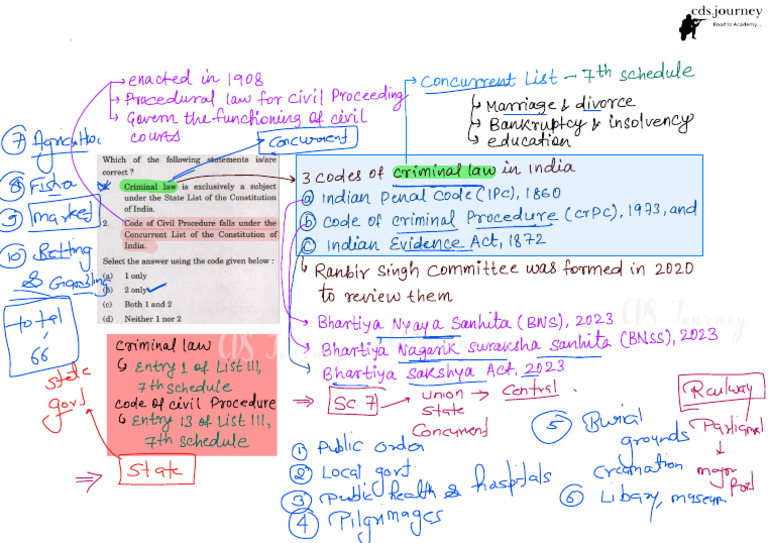 cds.journey
Road to Academy...
enacted in 1908
Procedural law for Civil Proceeding
Govern the functioning of civil
courts
Concurrent List - 7th schedule
Marriage & divorce
Bankruptcy & insolvency
education
concurrent
7
8
9 market
10 Betting
&
total
66
Which of the following statements is/are
correct?
Criminal law is exclusively a subject
under the State List of the Constitution
of India.
2. Code of Civil Procedure falls under the
Concurrent List of the Constitution of
India.
Select the answer using the code given below :
(a) 1 only
(b) 2 only
(c) Both 1 and 2
(d) Neither 1 nor 2
3 codes of criminal law in India
a Indian Penal Code (IPC), 1860
b code of criminal Procedure (CrPC), 1973, and
c Indian Evidence Act, 1872
Ranbir Singh Committee was formed in 2020
to review them
Bhartiya Nyaya Sanhita (BNS), 2023
Bhartiya Nagarik suraksha sanhita (BNSS), 2023
Bhartiya Sakshya Act, 2023
CDS Journey
criminal law
Entry 1 of List III,
7th schedule
code of civil Procedure
Entry 13 of List III,
7th schedule
state
govt
State
Sc 7
Union → Central
State
Concurrent
1 Public order
2 Local govt
3 Public health & hospitals
4 Pilgrimages
5 Burial
grounds
cremation
6 Libary, museum
Railway
major